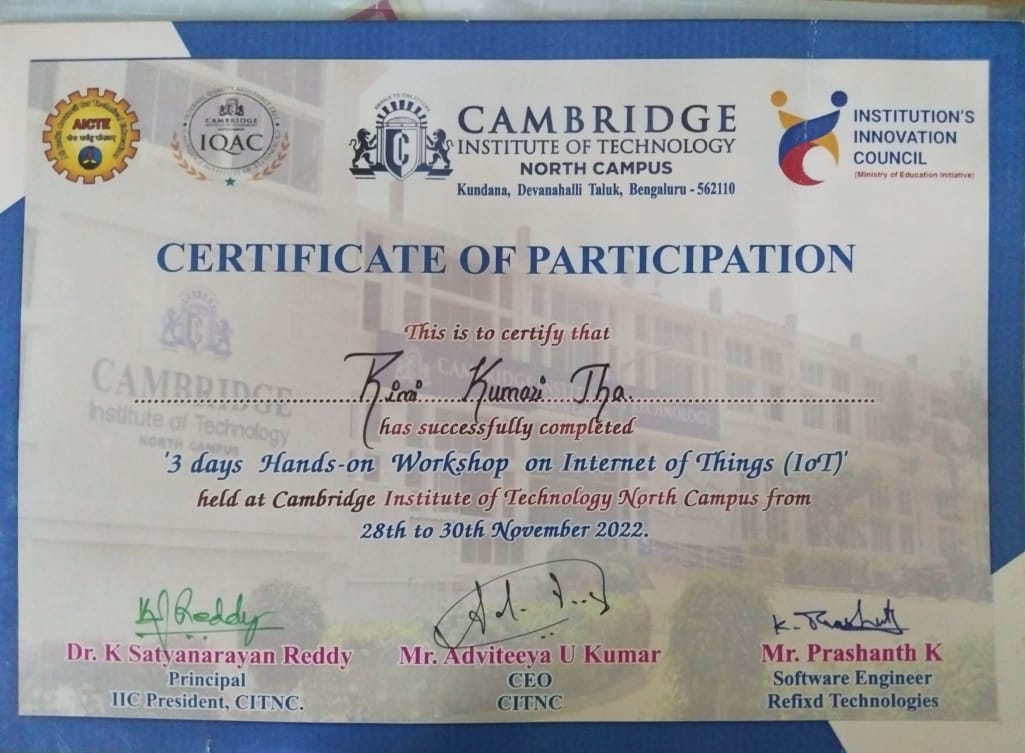 AICTE
CAMBRIDGE
IQAC
CAMBRIDGE
INSTITUTE OF TECHNOLOGY
NORTH CAMPUS
Kundana, Devanahalli Taluk, Bengaluru - 562110
INSTITUTION'S
INNOVATION
COUNCIL
(Ministry of Education Initiative)
CERTIFICATE OF PARTICIPATION
This is to certify that
Rimi Kumari Jha.
has successfully completed
'3 days Hands-on Workshop on Internet of Things (IoT)'
held at Cambridge Institute of Technology North Campus from
28th to 30th November 2022.
CAMBRIDGE
Institute of Technology
NORTH CAMPUS
Dr. K Satyanarayan Reddy
Principal
IIC President, CITNC.
Mr. Adviteeya U Kumar
CEO
CITNC
K. Prashanth
Mr. Prashanth K
Software Engineer
Refixd Technologies